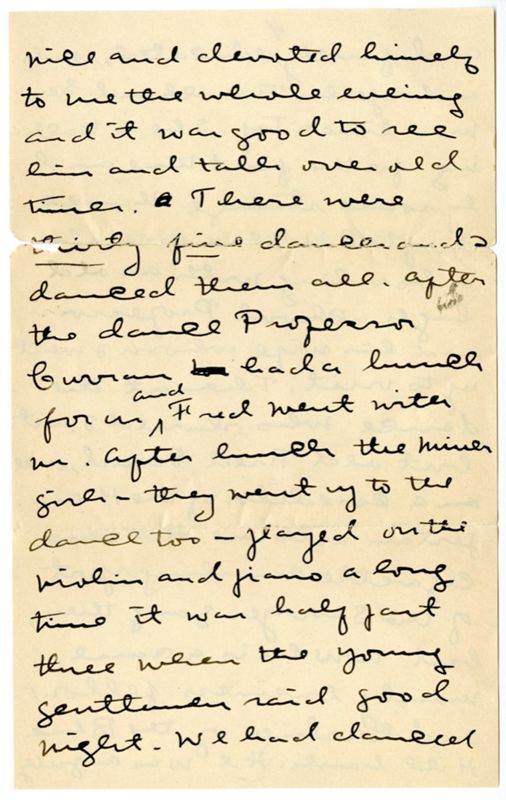 nice and devoted himself
to me the whole evening
and it was good to see
him and talk over old
times. There were
thirty five dances and I
danced them all. After
the dance Professor
Curran had a lunch
for us and Fred went with
us. After lunch the Miner
girls - they went up to the
dance too - played on the
violin and piano a long
time it was half past
three when the young
gentlemen said good
night. We had danced